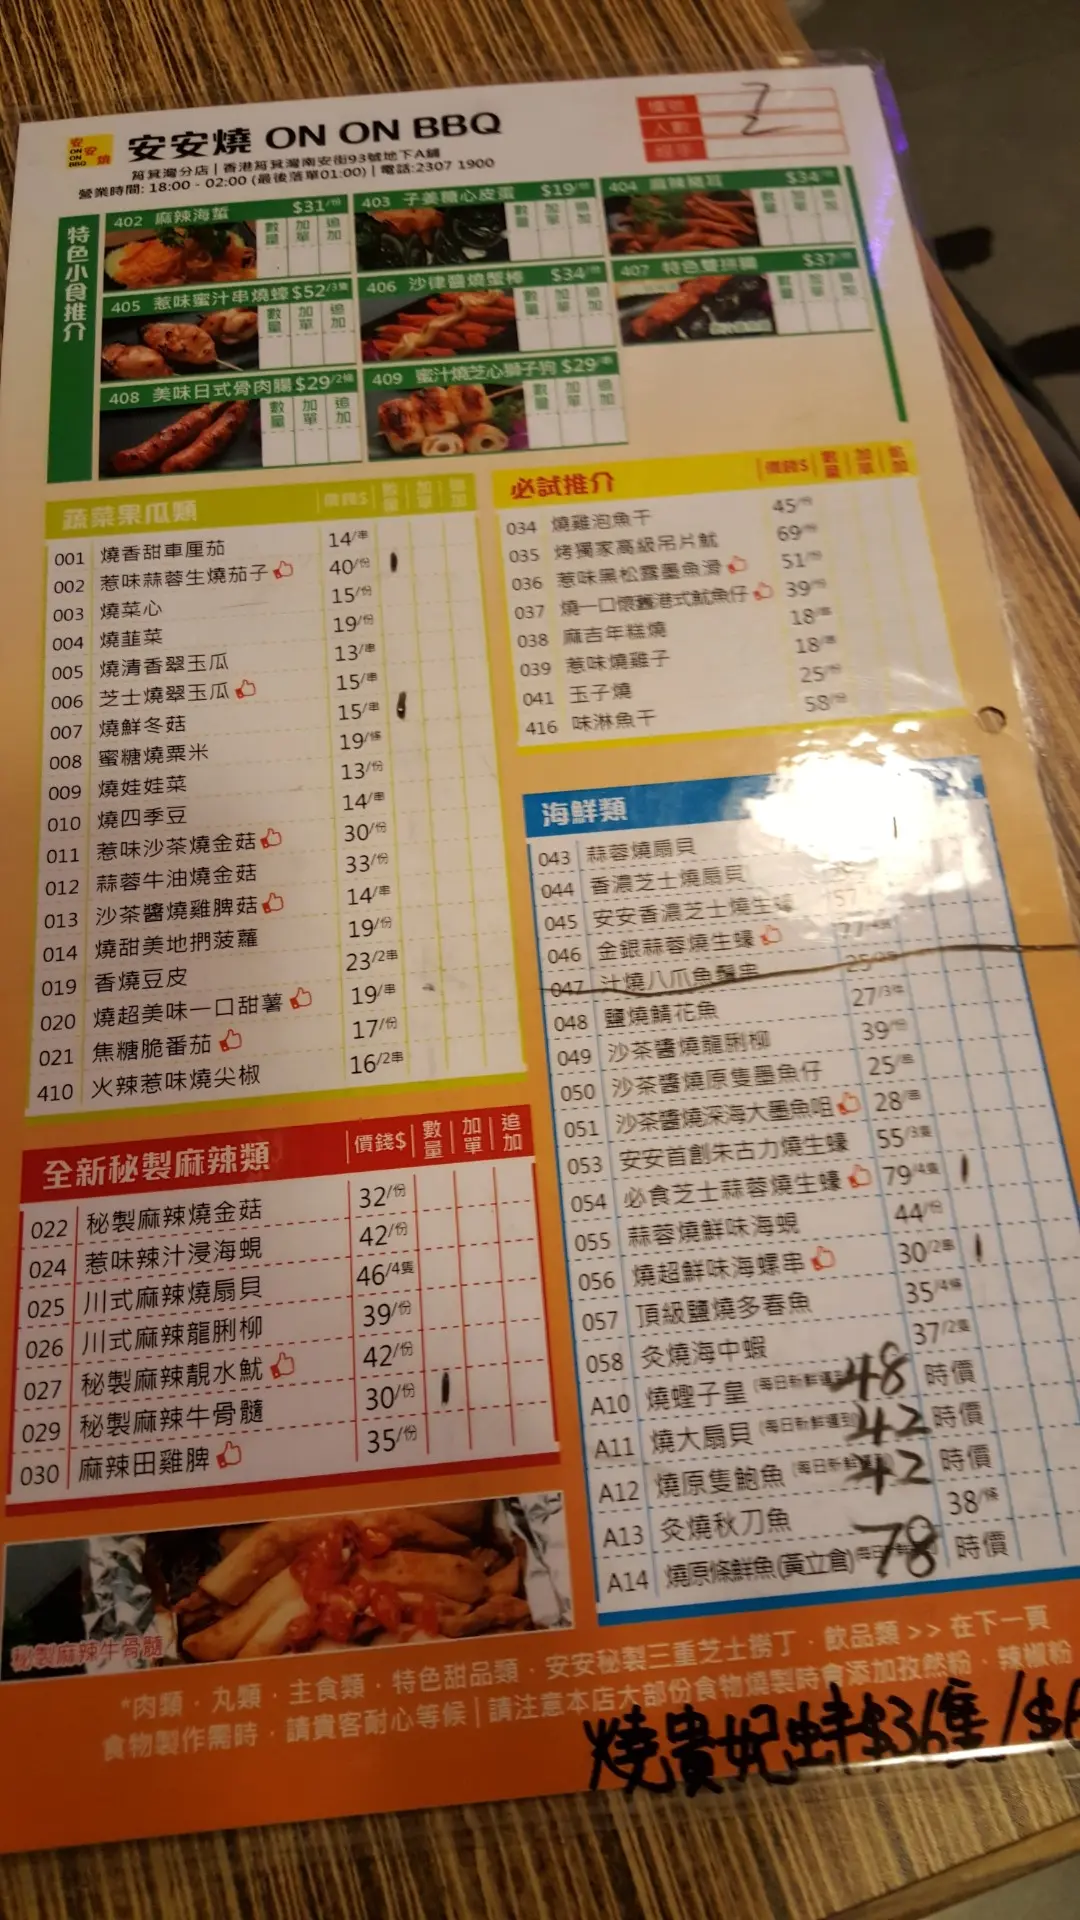 安安燒 ON ON BBQ
安安燒 ON ON BBQ
筲箕灣分店 | 香港筲箕灣南安街93號地下A舖
營業時間: 18:00 - 02:00 (最後落單01:00) | 電話:2307 1900
檯號 7
人數 2
經手
特色小食推介
402 麻辣海蜇 $31/份 數量 加單 追加
403 子姜糖心皮蛋 $19/份 數量 加單 追加
404 麻辣豬耳 $34/份 數量 加單 追加
405 惹味蜜汁串燒蠔 $52/3隻 數量 加單 追加
406 沙律醬燒蟹棒 $34/份 數量 加單 追加
407 特色雙拼腸 $37/份 數量 加單 追加
408 美味日式骨肉腸 $29/2條 數量 加單 追加
409 蜜汁燒芝心獅子狗 $29/串 數量 加單 追加
蔬菜果瓜類 價錢$ 數量 加單 追加
001 燒香甜車厘茄 14/串
002 惹味蒜蓉生燒茄子 40/份
003 燒菜心 15/份
004 燒韮菜 19/份
005 燒清香翠玉瓜 13/串
006 芝士燒翠玉瓜 15/串
007 燒鮮冬菇 15/串
008 蜜糖燒粟米 19/條
009 燒娃娃菜 13/份
010 燒四季豆 14/串
011 惹味沙茶燒金菇 30/份
012 蒜蓉牛油燒金菇 33/份
013 沙茶醬燒雞脾菇 14/串
014 燒甜美地捫菠蘿 19/份
019 香燒豆皮 23/2串
020 燒超美味一口甜薯 19/串
021 焦糖脆番茄 17/份
410 火辣惹味燒尖椒 16/2串
必試推介 價錢$ 數量 加單 追加
034 燒雞泡魚干 45/份
035 烤獨家高級吊片魷 69/份
036 惹味黑松露墨魚滑 51/份
037 燒一口懷舊港式魷魚仔 39/份
038 麻吉年糕燒 18/串
039 惹味燒雞子 18/串
041 玉子燒 25/份
416 味淋魚干 58/份
全新秘製麻辣類 價錢$ 數量 加單 追加
022 秘製麻辣燒金菇 32/份
024 惹味辣汁浸海蜆 42/份
025 川式麻辣燒扇貝 46/4隻
026 川式麻辣龍脷柳 39/份
027 秘製麻辣靚水魷 42/份
029 秘製麻辣牛骨髓 30/份
030 麻辣田雞脾 35/份
秘製麻辣牛骨髓
海鮮類
043 蒜蓉燒扇貝
044 香濃芝士燒扇貝
045 安安香濃芝士燒生蠔 57
046 金銀蒜蓉燒生蠔 77/4隻
047 汁燒八爪魚鬚串 25
048 鹽燒鯖花魚 27/3件
049 沙茶醬燒龍脷柳 39/份
050 沙茶醬燒原隻墨魚仔 25/串
051 沙茶醬燒深海大墨魚咀 28/串
053 安安首創朱古力燒生蠔 55/3隻
054 必食芝士蒜蓉燒生蠔 79/4隻
055 蒜蓉燒鮮味海蜆 44/份
056 燒超鮮味海螺串 30/2串
057 頂級鹽燒多春魚 35/4條
058 炙燒海中蝦 37/2隻
A10 燒蟶子皇 (每日新鮮 48 時價
A11 燒大扇貝 (每日新鮮運到) 42 時價
A12 燒原隻鮑魚 (每日新鮮 42 時價
A13 炙燒秋刀魚 38/條
A14 燒原條鮮魚(黃立倉) 78 時價
*肉類 · 丸類 · 主食類 · 特色甜品類 · 安安秘製三重芝士撈丁 · 飲品類 >> 在下一頁
食物製作需時 · 請貴客耐心等候 | 請注意本店大部份食物燒製時會添加孜然粉 · 辣椒粉
燒貴妃蚌$36隻/$6